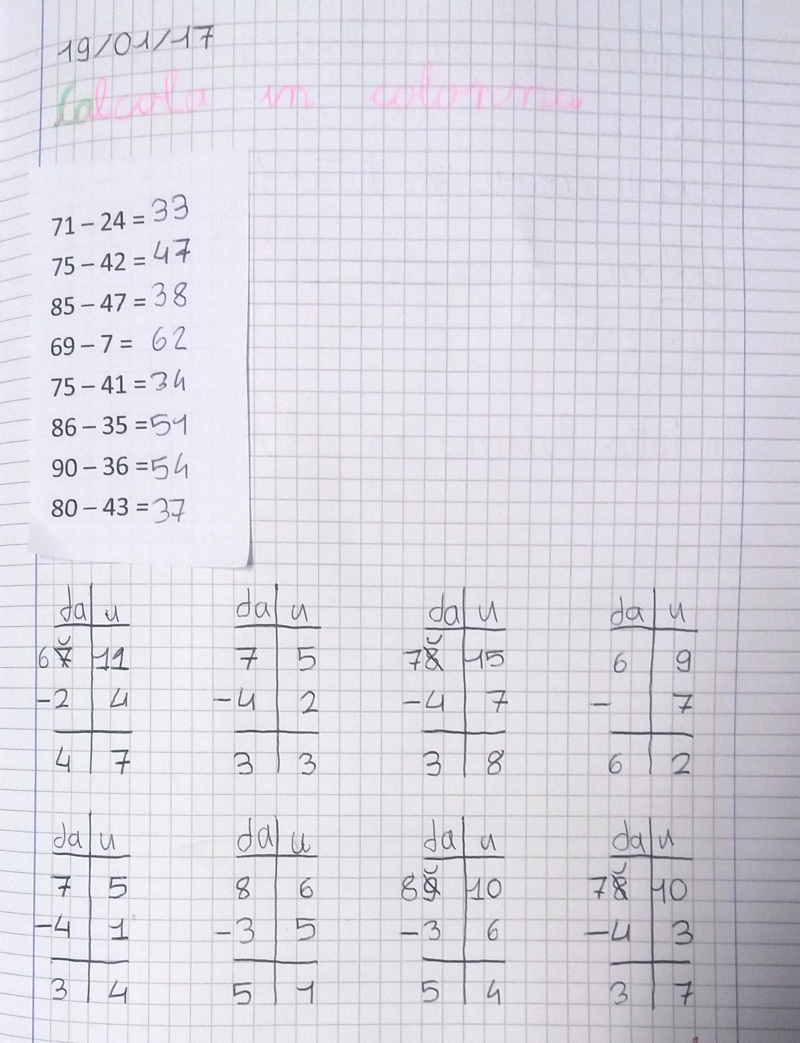 19/01/17
Calcola in colonna
71 – 24 = 33
75 – 42 = 47
85 – 47 = 38
69 – 7 = 62
75 – 41 = 34
86 – 35 = 51
90 – 36 = 54
80 – 43 = 37
da u da u da u da u
67 11 7 5 78 15 6 9
-2 4 -4 2 -4 7 - 7
4 7 3 3 3 8 6 2
da u da u da u da u
7 5 8 6 89 10 78 10
-4 1 -3 5 -3 6 -4 3
3 4 5 1 5 4 3 7